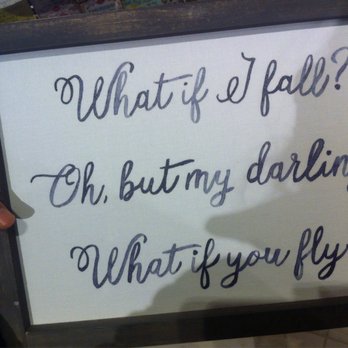 What if I fall?
Oh, but my darling
What if you fly